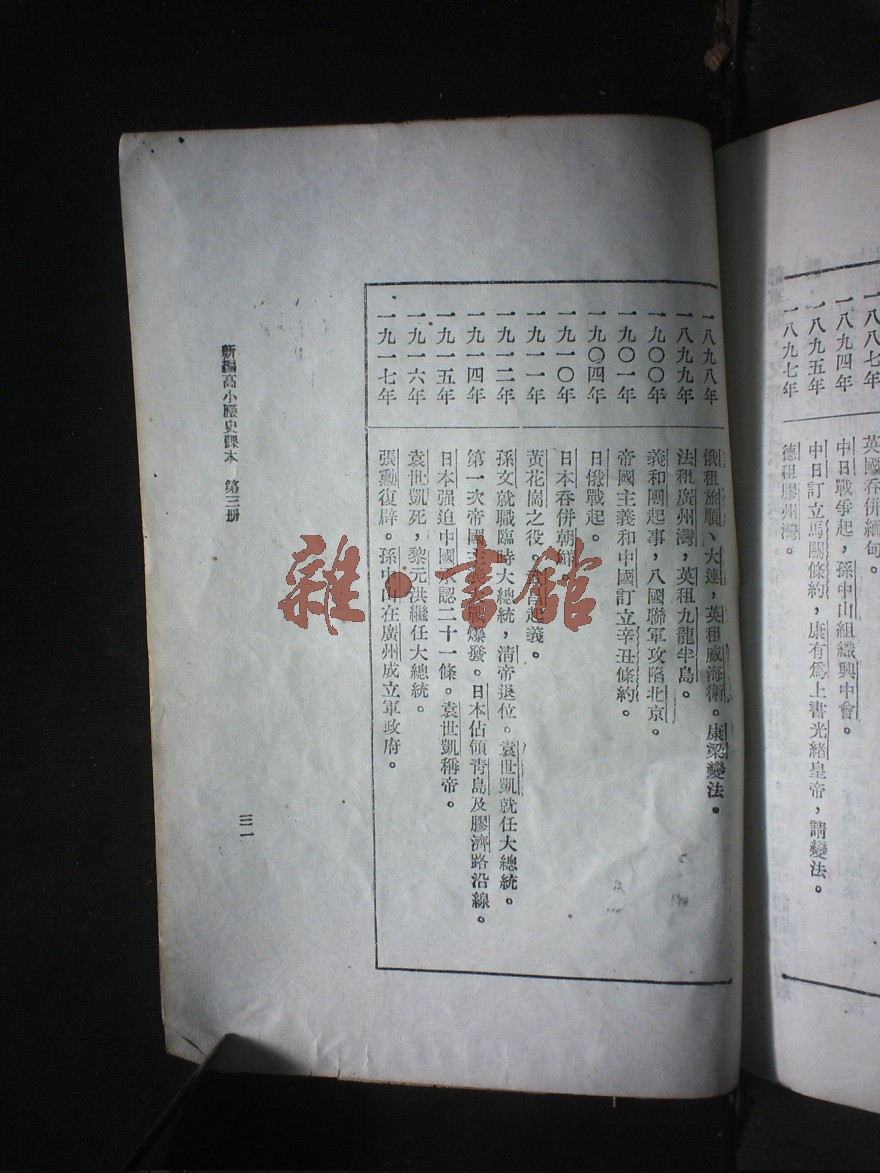 一八八七年 英國吞併緬甸。
一八九四年 中日戰爭起，孫中山組織興中會。
一八九五年 中日訂立馬關條約，康有爲上書光緒皇帝，請變法。
一八九七年 德租膠州灣。
一八九八年 俄租旅順、大連，英租威海衛。康梁變法。
一八九九年 法租廣州灣，英租九龍半島。
一九〇〇年 義和團起事，八國聯軍攻陷北京。
一九〇一年 帝國主義和中國訂立辛丑條約。
一九〇四年 日俄戰起。
一九一〇年 日本吞併朝鮮。
一九一一年 黃花崗之役。起義。
一九一二年 孫文就職臨時大總統，清帝退位。袁世凱就任大總統。
一九一四年 第一次帝國爆發。日本佔領青島及膠濟路沿線。
一九一五年 日本强迫中國承認二十一條。袁世凱稱帝。
一九一六年 袁世凱死，黎元洪繼任大總統。
一九一七年 張勳復辟。孫中山在廣州成立軍政府。
新編高小歷史課本 第三册
三一
雜·書館